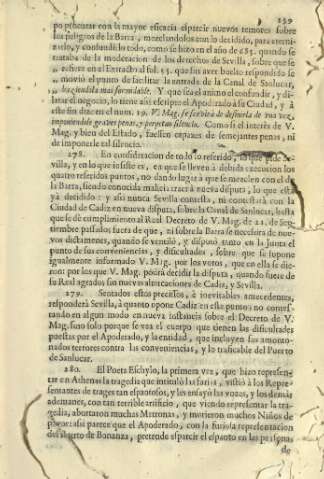 239
po procurar con la mayor eficacia esparcir nuevos temores sobre
los peligros de la Barra, mezclandolos aun lo decidido, para atemo-
rizarlo, y confundirlo todo, como se hizo en el año de 685. quando se
trataba de la moderacion de los derechos de Sevilla, sobre que se
refiere en el Extracto al fol. 35. que sin aver buelto respondido se
movió el punto de facilitar la entrada de la Canal de Sanlucar,
Y que sea el animo el confundir, y di-
latar el negocio, lo tiene assi escripto el Apoderado à su Ciudad, y à
este fin dize en el num. 19. V. Mag. se servirà de
imponiendo graves penas, y perpetuo silencio. Como si el interés de V.
Mag. y bien del Estado, fuessen capaces de semejantes penas, ni
de imponerle tal silencio.
278. En consideracion de todo lo referido, lo que pide Se-
villa, y en lo que insiste es, en que se lleven à debida execucion los
quatro referidos puntos, no dando lugar à que se mezclen con el de
la Barra, siendo conocida malicia traer à nueva disputa, lo que està
yà decidido: y assi nunca Sevilla contesta, ni contestarà con la
Ciudad de Cadiz en nueva disputa, sobre la Canal de Sanlucar, hasta
que se dè cumplimiento al Real Decreto de V. Mag. de 21. de Sep-
tiembre passado: fuera de que, ni sobre la Barra se necessita de nue-
vos dictamenes, quando se ventilò, y disputò tanto en la Junta el
punto de sus conveniencias, y dificultades, sobre que se supone
igualmente informado V. Mag. por los votos, que en ella se die-
ron: por los que V. Mag. podrà decidir la disputa, quando fuere de
su Real agrado, sin nuevas altercaciones de Cadiz, y Sevilla.
279. Sentados estos precisos, è inevitables antecedentes,
responderà Sevilla, à quanto opone Cadiz en este punto: no contes-
tando en algun modo en nueva instancia sobre el Decreto de V.
Mag. sino solo porque se vea el cuerpo que tienen las dificultades
puestas por el Apoderado, y la entidad, que incluyen sus amonto-
nados terrores contra las conveniencias, y lo traficable del Puerto
de Sanlucar.
280. El Poeta Eschylo, la primera vez, que hizo represen-
tar en Athenas la tragedia que intitulò las furias, vistiò à los Repre-
sentantes de trages tan espantosos, y les ensayò las vozes, y los demàs
ademanes, con tan terrible artificio, que viendo representar la tra-
gedia, abortaron muchas Matronas, y murieron muchos Niños de
pavor: assi parece que el Apoderado, con la furiosa representacion
del Puerto de Bonanza, pretende esparcir el espanto en las personas
de